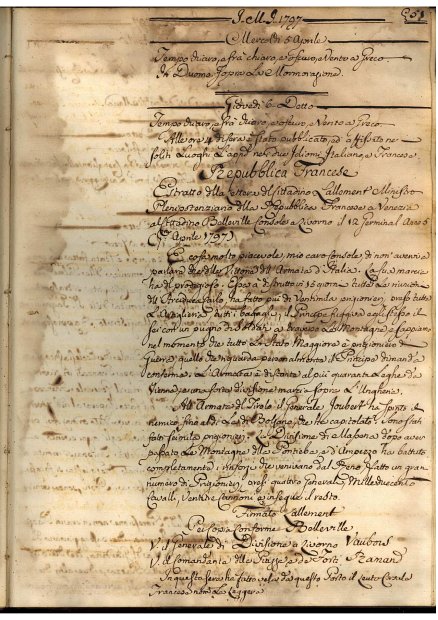 J. M. J. 1797
Mercoldì 5 Aprile
Tempo chiaro, a frà chiaro, e oscuro, e Vento a Greco
In Duomo sopra La Mormorazione.
Giovedì 6 Detto
Tempo chiaro, a frà chiaro, e oscuro, e Vento a Greco
Alle ore 4 di sera è stato pubblicato, ed affissato ne
soliti Luoghi Capi ne due Idiomi Italiano, e Francese
Repubblica Francese
Estratto della lettera del Cittadino Lallement Ministro
Plenipotenziario della Repubblica Francese a Venezia
al Cittadino Belleville Console a Livorno il 12 Germinal Anno 5
(1 Aprile 1797)
È cosa molto piacevole, mio caro Console, di non avervi a
parlare che delle Vittorie dell'Armata d'Italia. La sua marcia
ha del prodigioso. Essa ha distrutto in 15 giorni tutta La
di Arciduca Carlo, ha fatto più di Ventimila prigionieri, preso tutta
L'Artiglieria, tutti i bagagli, il Principe fuggire egli stesso
con un pugno di Soldati a traverso Le Montagne
nel momento che tutto Lo Stato Maggiore è prigioniero di
Guerra
conferma. L'Armata è distante al più quaranta Leghe da
Vienna, e una forte divisione marcia sopra L'Ungheria.
All'Armata del Tirolo il Generale Joubert ha spinto il
nemico fino al di là di Bolzano, che ha capitolato. Sono stati
fatti seimila prigionieri. La Divisione di Massena dopo aver
passato Le Montagne della Pontieba, e d'Ampezzo ha battuto
completamente i rinforzi che venivano dal Reno, fatto un gran
numero di Prigionieri, presi quattro Generali, Mille duecento
Cavalli, Ventitre Cannoni, e insegue il resto.
Firmato Lallement
Per Copia Conforme Belleville
V. il Generale di Divisione a Livorno Vaubois
V. il Comandante della Piazza, e de Forti
In questa sera ha fatto vela da questo Porto il
Francese nom.to La Leggera